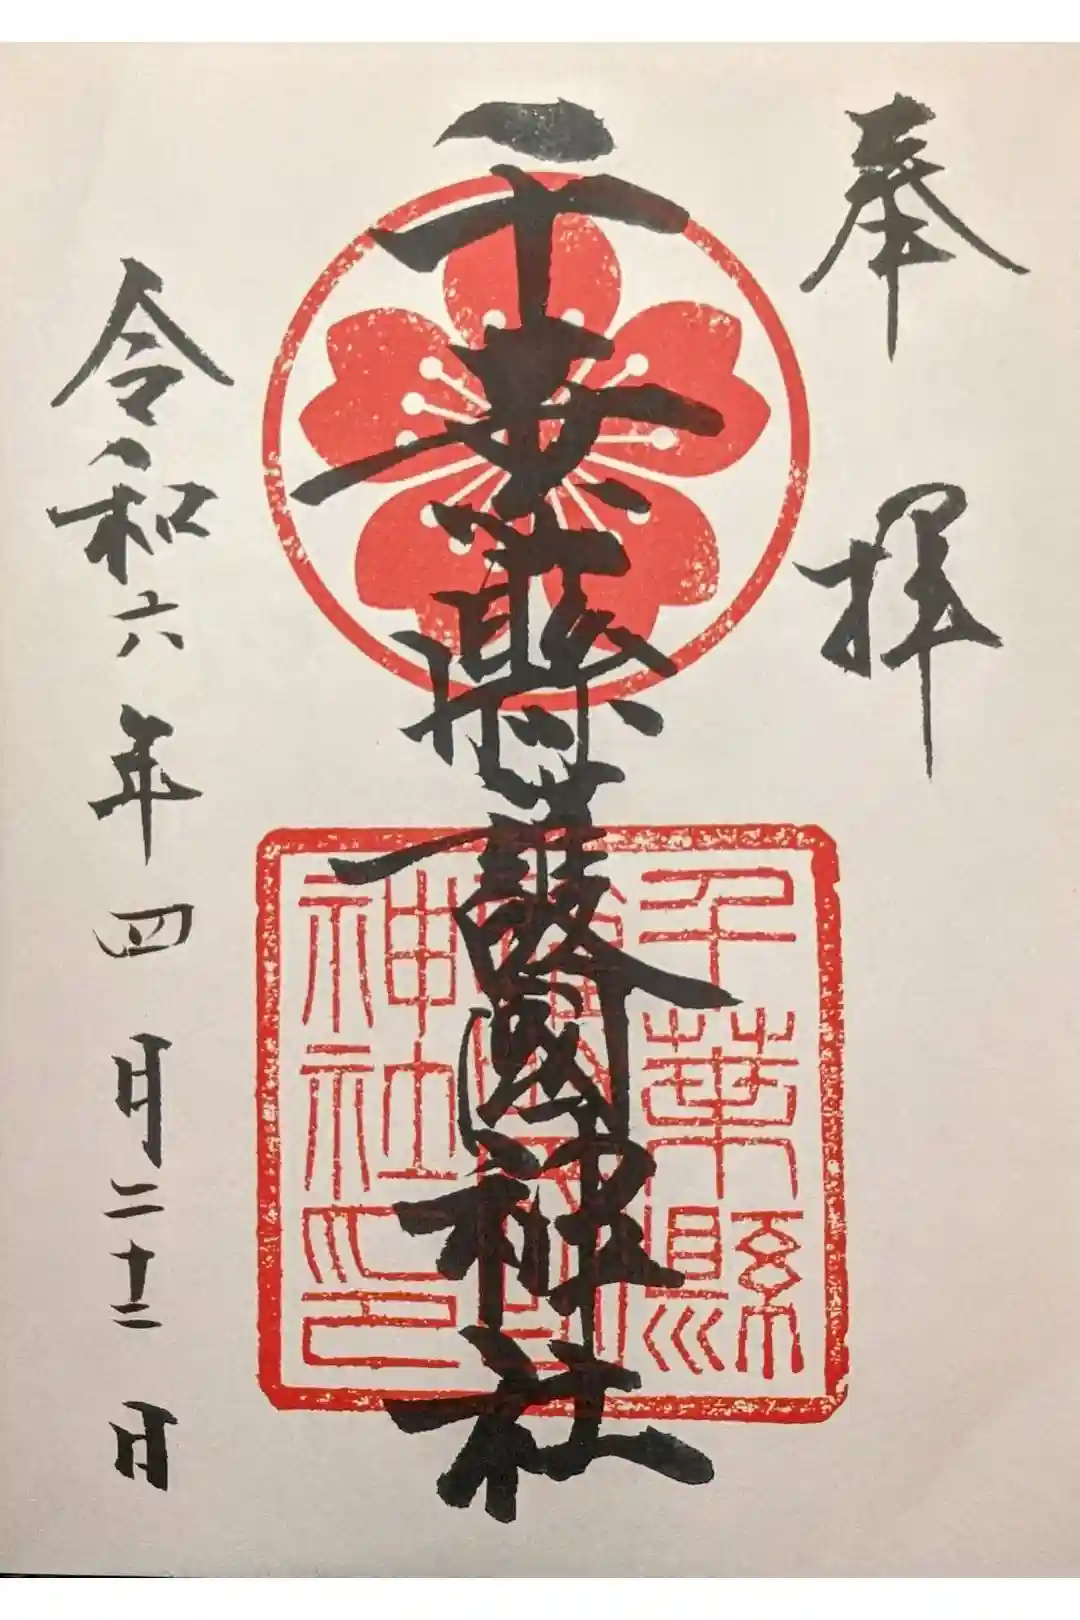 奉拝
千葉縣護國神社
千葉縣
護國
神社印
令和六年四月二十二日